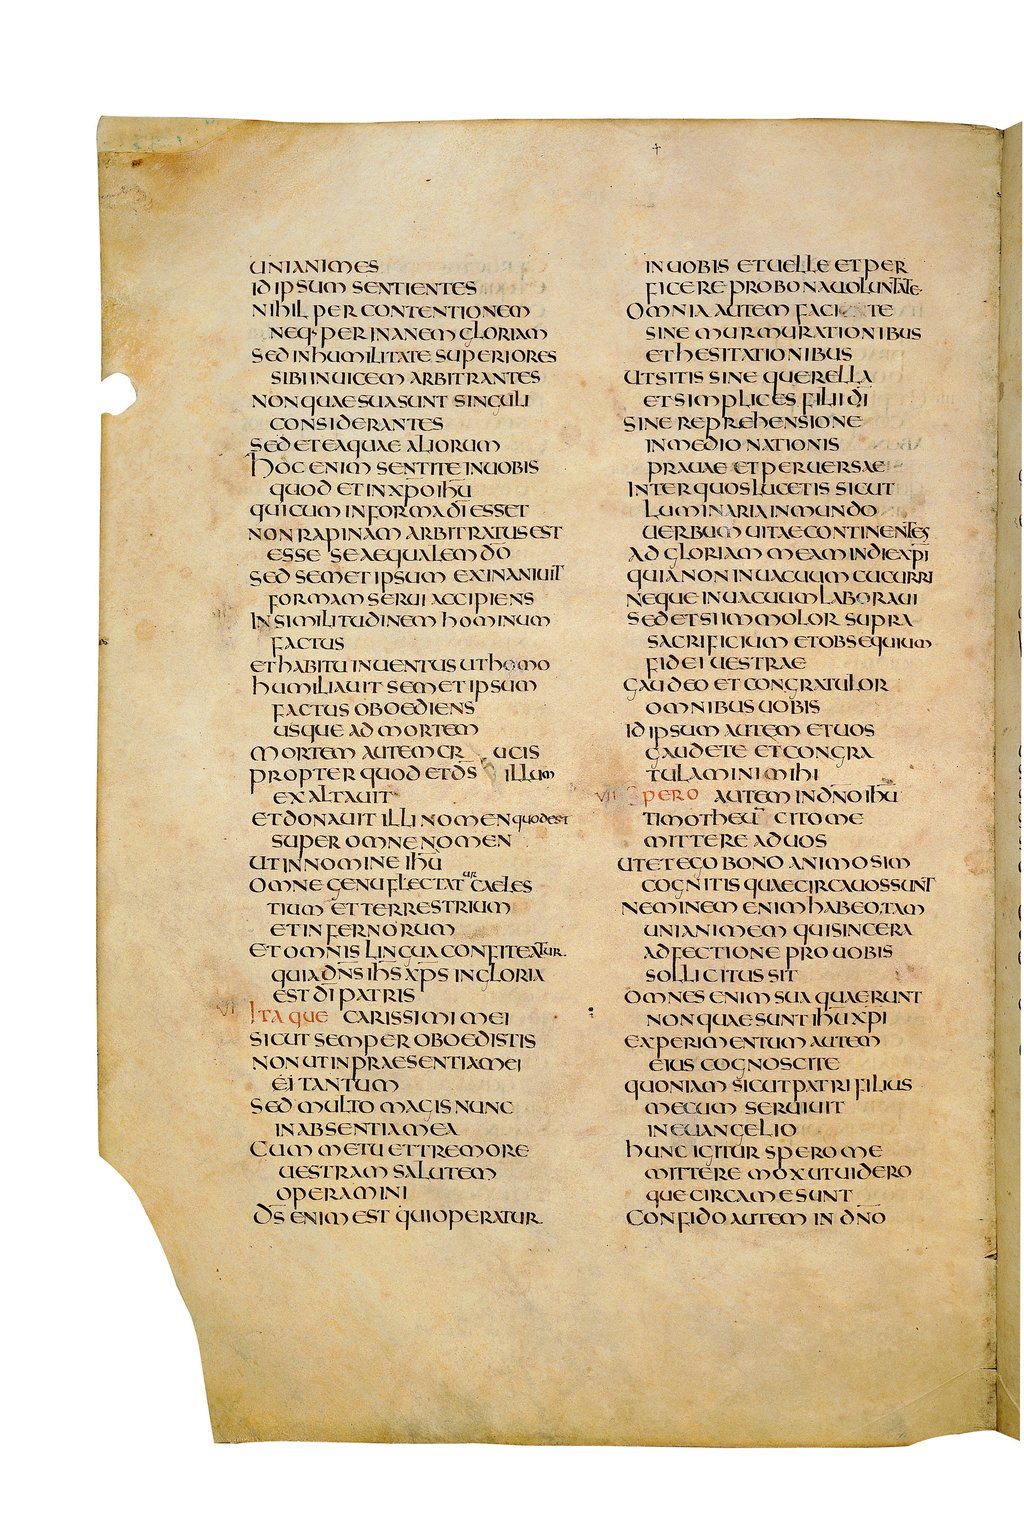 †
UNIANIMES
ID IPSUM SENTIENTES
NIHIL PER CONTENTIONEM
NEQ· PER INANEM GLORIAM
SED IN HUMILITATE SUPERIORES
SIBI INUICEM ARBITRANTES
NON QUAE SUA SUNT SINGULI
CONSIDERANTES
SED ET EA QUAE ALIORUM
HOC ENIM SENTITE IN UOBIS
QUOD ET IN XP̄O IHŪ
QUI CUM IN FORMA DĪ ESSET
NON RAPINAM ARBITRATUS EST
ESSE SE AEQUALEM DŌ
SED SEMET IPSUM EXINANIUIT
FORMAM SERUI ACCIPIENS
IN SIMILITUDINEM HOMINUM
FACTUS
ET HABITU INUENTUS UT HOMO
HUMILIAUIT SEMET IPSUM
FACTUS OBOEDIENS
USQUE AD MORTEM
MORTEM AUTEM CRUCIS
PROPTER QUOD ET DS̄ ILLUM
EXALTAUIT
ET DONAUIT ILLI NOMEN QUOD EST
SUPER OMNE NOMEN
UT IN NOMINE IHŪ
OMNE GENU FLECTATUR CAELES
TIUM ET TERRESTRIUM
ET INFERNORUM
ET OMNIS LINGUA CONFITEATUR
QUIA DN̄S IHS̄ XP̄S IN GLORIA
EST DĪ PATRIS
VI ITAQUE CARISSIMI MEI
SICUT SEMPER OBOEDISTIS
NON UT IN PRAESENTIA MEI
EI TANTUM
SED MULTO MAGIS NUNC
IN ABSENTIA MEA
CUM METU ET TREMORE
UESTRAM SALUTEM
OPERAMINI
DS̄ ENIM EST QUI OPERATUR
IN UOBIS ET UELLE ET PER
FICERE PRO BONA UOLUNTATE·
OMNIA AUTEM FACITE
SINE MURMURATIONIBUS
ET HESITATIONIBUS
UT SITIS SINE QUERELLA
ET SIMPLICES FILII DĪ
SINE REPREHENSIONE
IN MEDIO NATIONIS
PRAUAE ET PERUERSAE
INTER QUOS LUCETIS SICUT
LUMINARIA IN MUNDO
UERBUM UITAE CONTINENTES
AD GLORIAM MEAM IN DIE XP̄I
QUIA NON IN UACUUM CUCURRI
NEQUE IN UACUUM LABORAUI
SED ET SI IMMOLOR SUPRA
SACRIFICIUM ET OBSEQUIUM
FIDEI UESTRAE
GAUDEO ET CONGRATULOR
OMNIBUS UOBIS
ID IPSUM AUTEM ET UOS
GAUDETE ET CONGRA
TULAMINI MIHI
VII SPERO AUTEM IN DN̄O IHŪ
TIMOTHEŪ CITO ME
MITTERE AD UOS
UT ET EGO BONO ANIMO SIM
COGNITIS QUAE CIRCA UOS SUNT
NEMINEM ENIM HABEO TAM
UNIANIMEM QUI SINCERA
ADFECTIONE PRO UOBIS
SOLLICITUS SIT
OMNES ENIM SUA QUAERUNT
NON QUAE SUNT IHŪ XP̄I
EXPERIMENTUM AUTEM
EIUS COGNOSCITE
QUONIAM SICUT PATRI FILIUS
MECUM SERUIUIT
IN EUANGELIO
HUNC IGITUR SPERO ME
MITTERE MOX UT UIDERO
QUE CIRCA ME SUNT
CONFIDO AUTEM IN DN̄O